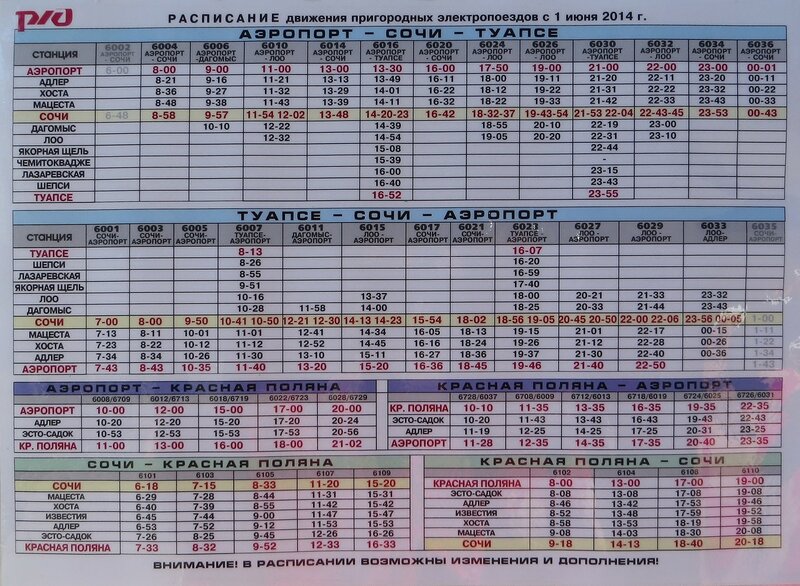 РЖД
РАСПИСАНИЕ движения пригородных электропоездов с 1 июня 2014 г.
АЭРОПОРТ - СОЧИ - ТУАПСЕ
СТАНЦИЯ 6002 АЭРОПОРТ - СОЧИ 6004 АЭРОПОРТ - СОЧИ 6006 АЭРОПОРТ -ДАГОМЫС 6010 АЭРОПОРТ - ЛОО 6014 АЭРОПОРТ - СОЧИ 6016 АЭРОПОРТ - ТУАПСЕ 6020 АЭРОПОРТ - СОЧИ 6024 АЭРОПОРТ - ЛОО 6026 АЭРОПОРТ - ЛОО 6030 АЭРОПОРТ - ТУАПСЕ 6032 АЭРОПОРТ - ЛОО 6034 АЭРОПОРТ - СОЧИ 6036 АЭРОПОРТ - СОЧИ
АЭРОПОРТ 6-00 8-00 9-00 11-00 13-00 13-30 16-00 17-50 19-00 21-00 22-00 23-00 00-01
АДЛЕР 8-21 9-16 11-21 13-13 13-49 16-11 18-00 19-11 21-20 22-11 23-20 00-11
ХОСТА 8-36 9-27 11-32 13-29 14-01 16-22 18-12 19-22 21-31 22-22 23-32 00-22
МАЦЕСТА 8-48 9-38 11-43 13-39 14-11 16-32 18-22 19-33 21-42 22-33 23-43 00-33
СОЧИ 6-48 8-58 9-57 11-54 12-02 13-48 14-20-23 16-42 18-32-37 19-43-54 21-53 22-04 22-43-45 23-53 00-43
ДАГОМЫС 10-10 12-22 14-39 18-55 20-10 22-19 23-00
ЛОО 12-32 14-54 19-05 20-20 22-31 23-10
ЯКОРНАЯ ЩЕЛЬ 15-08 22-44
ЧЕМИТОКВАДЖЕ 15-39 -
ЛАЗАРЕВСКАЯ 16-00 23-15
ШЕПСИ 16-40 23-43
ТУАПСЕ 16-52 23-55
ТУАПСЕ - СОЧИ - АЭРОПОРТ
СТАНЦИЯ 6001 СОЧИ- АЭРОПОРТ 6003 СОЧИ- АЭРОПОРТ 6005 СОЧИ- АЭРОПОРТ 6007 ТУАПСЕ- АЭРОПОРТ 6011 ДАГОМЫС- АЭРОПОРТ 6015 ЛОО - АЭРОПОРТ 6017 СОЧИ- АЭРОПОРТ 6021 СОЧИ- АЭРОПОРТ 6023 ТУАПСЕ- АЭРОПОРТ 6027 ЛОО - АЭРОПОРТ 6029 ЛОО - АЭРОПОРТ 6033 ЛОО- АДЛЕР 6035 СОЧИ- АЭРОПОРТ
ТУАПСЕ 8-13 16-07
ШЕПСИ 8-26 16-20
ЛАЗАРЕВСКАЯ 8-55 16-59
ЯКОРНАЯ ЩЕЛЬ 9-51 17-40
ЛОО 10-16 13-37 18-00 20-21 21-33 23-32
ДАГОМЫС 10-28 11-58 14-00 18-25 20-33 21-44 23-43
СОЧИ 7-00 8-00 9-50 10-41 10-50 12-21 12-30 14-13 14-23 15-54 18-02 18-56 19-05 20-45 20-50 22-00 22-06 23-56 00-05 1-00
МАЦЕСТА 7-13 8-11 10-01 11-01 12-41 14-34 16-05 18-13 19-15 21-01 22-17 00-15 1-11
ХОСТА 7-23 8-22 10-12 11-12 12-52 14-45 16-16 18-24 19-26 21-12 22-28 00-26 1-22
АДЛЕР 7-34 8-34 10-26 11-30 13-10 15-11 16-27 18-36 19-37 21-30 22-40 00-36 1-34
АЭРОПОРТ 7-43 8-43 10-35 11-40 13-20 15-20 16-36 18-45 19-46 21-40 22-50 1-43
АЭРОПОРТ - КРАСНАЯ ПОЛЯНА
6008/6709 6012/6713 6018/6719 6022/6723 6028/6729
АЭРОПОРТ 10-00 12-00 15-00 17-00 20-00
АДЛЕР 10-20 12-20 15-20 17-20 20-24
ЭСТО-САДОК 10-53 12-53 15-53 17-53 20-56
КР. ПОЛЯНА 11-00 13-00 16-00 18-00 21-02
КРАСНАЯ ПОЛЯНА - АЭРОПОРТ
6728/6037 6708/6009 6712/6013 6718/6019 6724/6025 6726/6031
КР. ПОЛЯНА 10-10 11-35 13-35 16-35 19-35 22-35
ЭСТО-САДОК 10-20 11-43 13-43 16-43 19-43 22-43
АДЛЕР 11-19 12-25 14-25 17-25 20-31 23-25
АЭРОПОРТ 11-28 12-35 14-35 17-35 20-40 23-35
СОЧИ - КРАСНАЯ ПОЛЯНА
6101 6103 6105 6107 6109
СОЧИ 6-18 7-15 8-33 11-20 15-20
МАЦЕСТА 6-29 7-28 8-44 11-31 15-31
ХОСТА 6-40 7-39 8-55 11-42 15-42
ИЗВЕСТИЯ 6-45 7-44 9-00 11-47 15-47
АДЛЕР 6-53 7-52 9-12 11-53 15-53
ЭСТО-САДОК 7-26 8-25 9-45 12-26 16-26
КРАСНАЯ ПОЛЯНА 7-33 8-32 9-52 12-33 16-33
КРАСНАЯ ПОЛЯНА - СОЧИ
6102 6104 6108 6110
КРАСНАЯ ПОЛЯНА 8-00 13-00 17-00 19-00
ЭСТО-САДОК 8-08 13-08 17-08 19-08
АДЛЕР 8-46 13-42 17-53 19-46
ИЗВЕСТИЯ 8-52 13-48 17-59 19-52
ХОСТА 8-58 13-53 18-19 19-58
МАЦЕСТА 9-08 14-03 18-30 20-08
СОЧИ 9-18 14-13 18-40 20-18
ВНИМАНИЕ! В РАСПИСАНИИ ВОЗМОЖНЫ ИЗМЕНЕНИЯ И ДОПОЛНЕНИЯ!